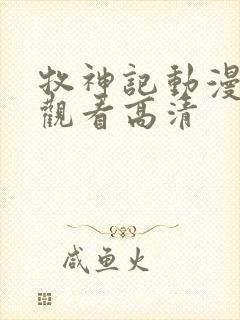 牧神記動漫
觀看高清
咸鱼火